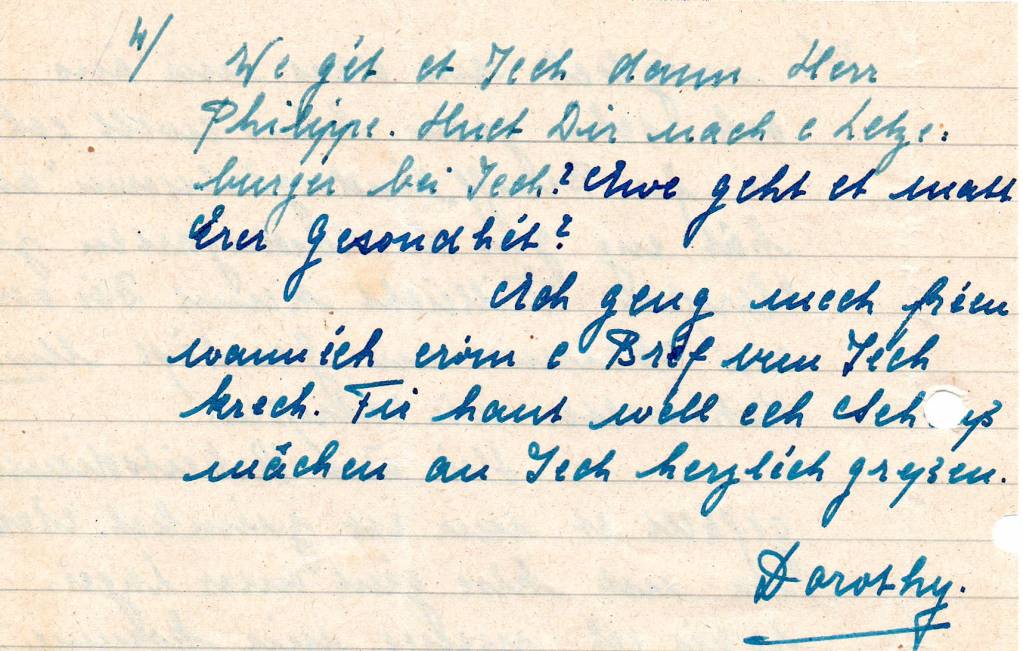 4/ We gét et Iech dann Herr
Philippe. Huet Dir nach e Letze=
burger bei Iech? Awe geht et matt
Erer Gesondhét?
Ech geng mech freen
wann ech eröm e Bréf vun Iech
krech. Fir haut well ech Sch
mächen an Iech herzlich greßen.
Dorothy.